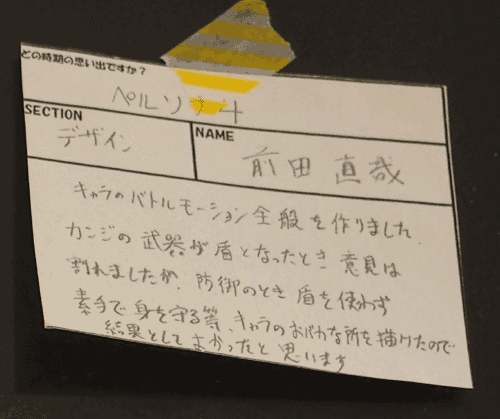 どの時期の思い出ですか？
ペルソナ4
SECTION
デザイン
NAME
前田 直哉
キャラのバトルモーション全般を作りました。
カンジの武器が盾となったとき意見は
割れましたが、防御のとき盾を使わず
素手で身を守る等、キャラのおバカな所を描けたので
結果としてよかったと思います